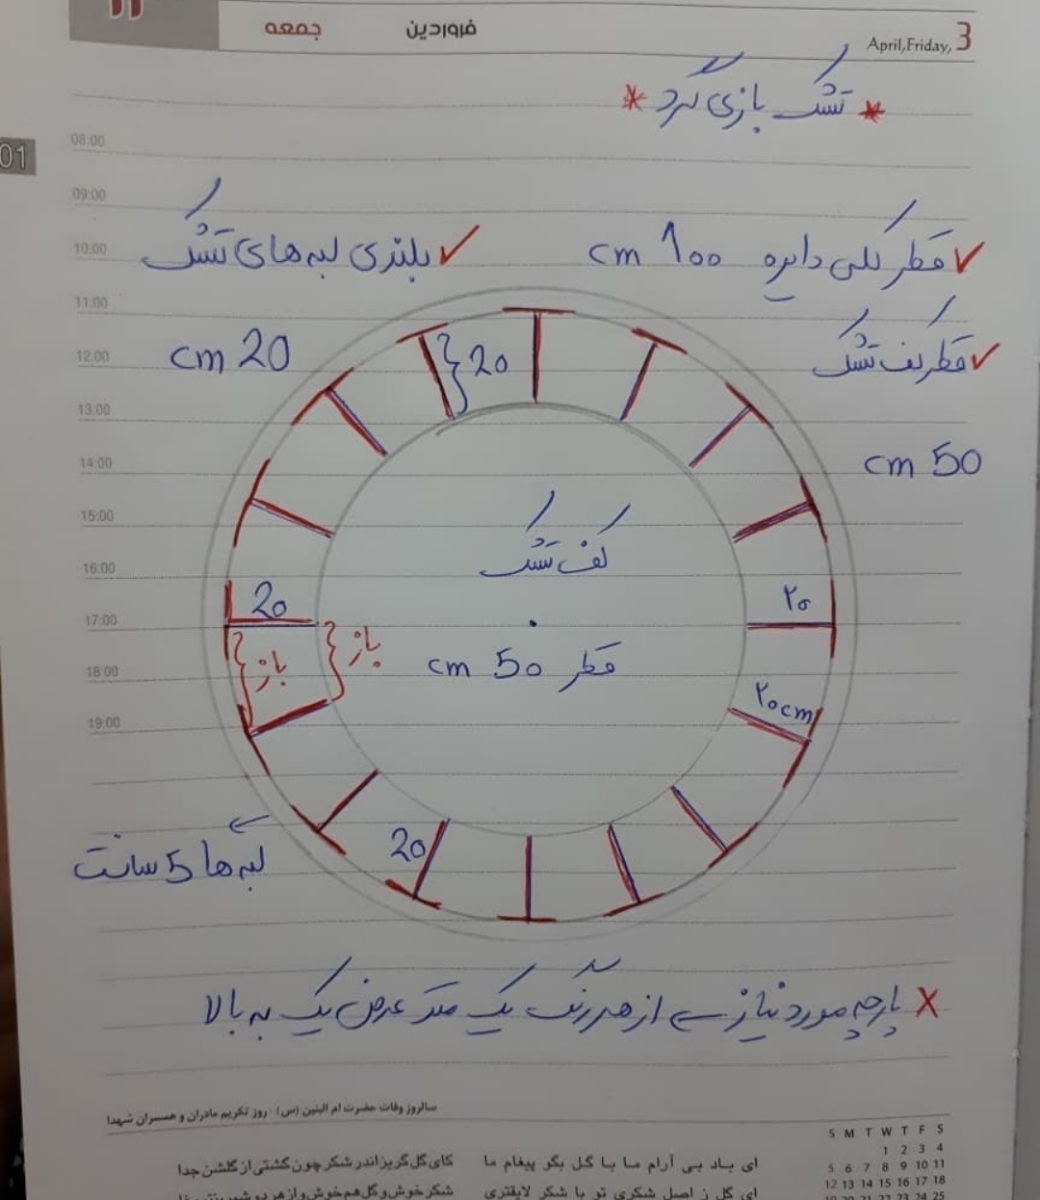 فروردین جمعه
April,Friday, 3
01
* تشک بازی گرد *
✓ قطر کلی دایره 100 cm
✓ بلندی لبه های تشک
20 cm
✓ قطر کف تشک
50 cm
08:00
09:00
10:00
11:00
12:00
13:00
14:00
15:00
16:00
17:00
18:00
19:00
20
کف تشک
قطر 50 cm
20
۲۰
باز
باز
۲۰cm
20
لبه ها 5 سانت
X پارچه مورد نیاز از هر رنگ یک متر عرض یک به بالا
سالروز وفات حضرت ام البنین (س) - روز تکریم مادران و همسران شهدا
ای باد بی آرام ما با گل بگو پیغام ما
کای گل گریز اندر شکر چون گشتی از گلشن جدا
ای گل ز اصل شکری تو با شکر لایقتری
شکر خوش و گل هم خوش و از هر دو شیرین
S M T W T F S
1 2 3 4
5 6 7 8 9 10 11
12 13 14 15 16 17 18